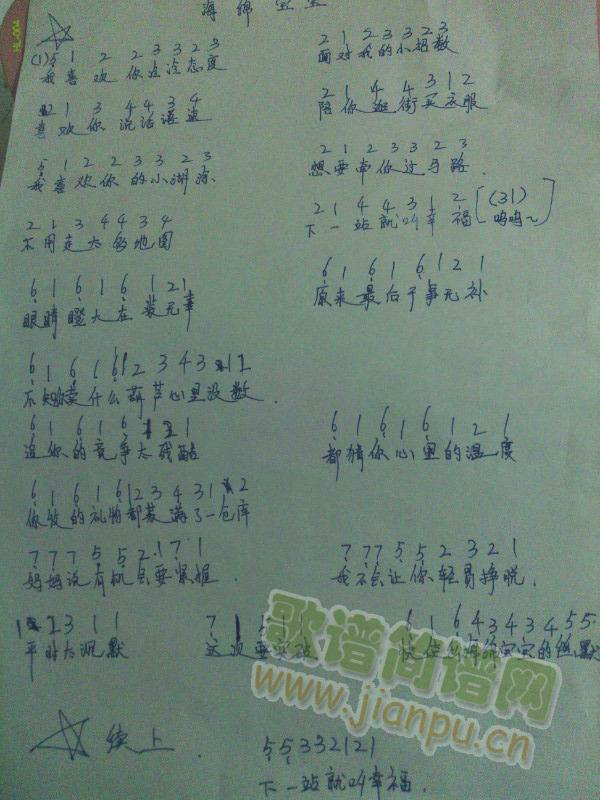 海绵宝宝
(1) 5 1 2 2 3 3 2 3
我喜欢你这冷态度
2 1 2 3 3 2 3
面对我的小招数
2 1 3 4 4 3 4
喜欢你说话温柔
2 1 4 4 3 1 2
陪你逛街买衣服
5 1 2 2 3 3 2 3
我喜欢你的小糊涂
2 1 2 3 3 2 3
想要带你过马路
2 1 3 4 4 3 4
不用走大的地图
2 1 4 4 3 1 2 (31)
下一站就叫幸福 呜呜~
6 1 6 1 6 1 2 1
眼睛瞪大在装无辜
6 1 6 1 6 1 2 1
原来最后于事无补
6 1 6 1 6 1 2 3 4 3 1 2
不知你卖什么葫芦心里没数
6 1 6 1 6 1 2 1
追你的竞争太残酷
6 1 6 1 6 1 2 1
都猜你心里的温度
6 1 6 1 6 1 2 3 4 3 1 2
你收的礼物都装满了一仓库
7 7 7 5 5 2 1 7 1
妈妈说有机会要紧握
7 7 7 5 5 2 3 2 1
我不会让你轻易挣脱
1 2 3 1 1
平时太沉默
7 1
这次要
6 1 6 4 3 4 3 4 5 5
海绵宝宝的幽默
续上
5 5 3 3 2 1 2 1
下一站就叫幸福
歌谱简谱网
www.jianpu.cn